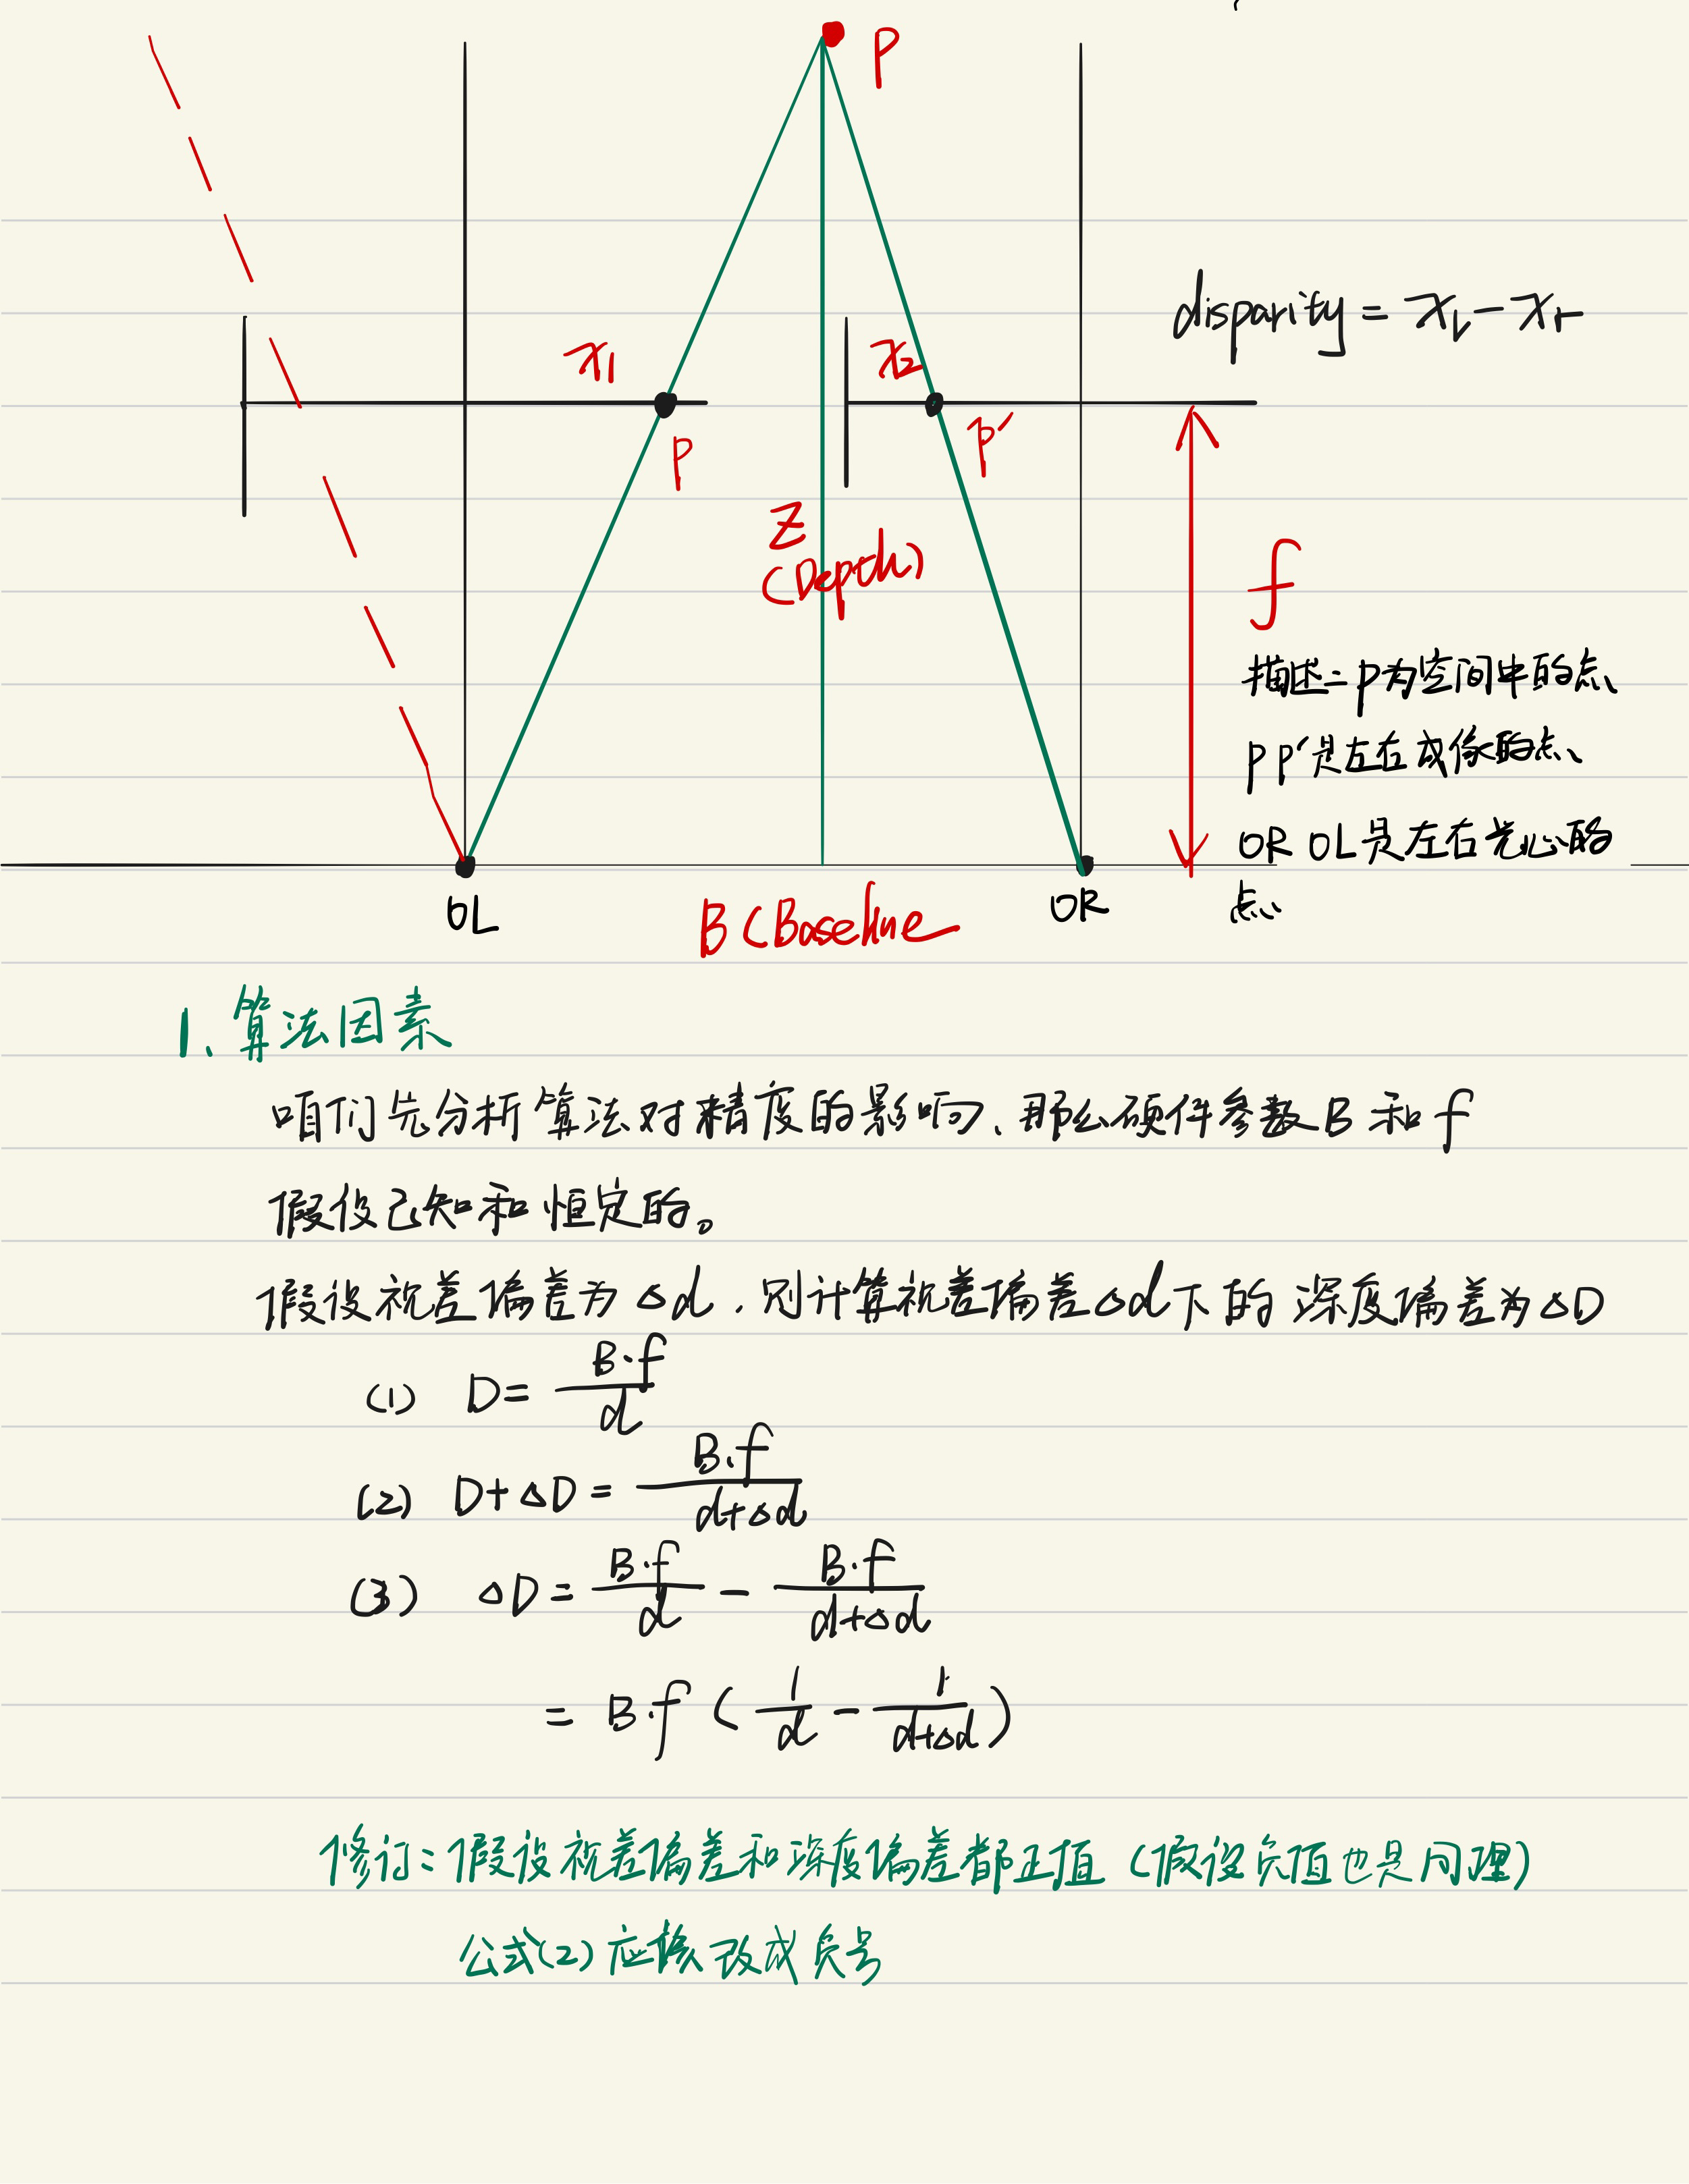 P
disparity = xL - xr
x1
x2
P
P'
Z
(Depth)
f
描述: P为空间中的点、
PP'是左右成像的点、
OR OL是左右光心的
点、
OL
B (Baseline
OR
1、算法因素
咱们先分析算法对精度的影响、那么硬件参数B和f
假设已知和恒定的。
假设视差偏差为△d,则计算视差偏差△d下的深度偏差为△D
(1) D = B·f / d
(2) D+△D = B·f / d+△d
(3) △D = B·f / d - B·f / d+△d
= B·f ( 1/d - 1/d+△d )
修订:假设视差偏差和深度偏差都正值(假设负值也是同理)
公式(2)应该改成负号